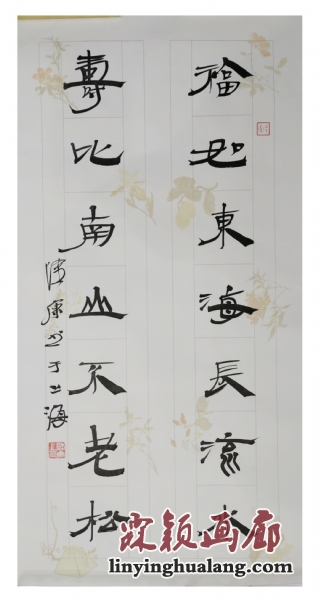 福如東海長流水
壽比南山不老松
书于上海
霖颖画廊
linyinghualang.com